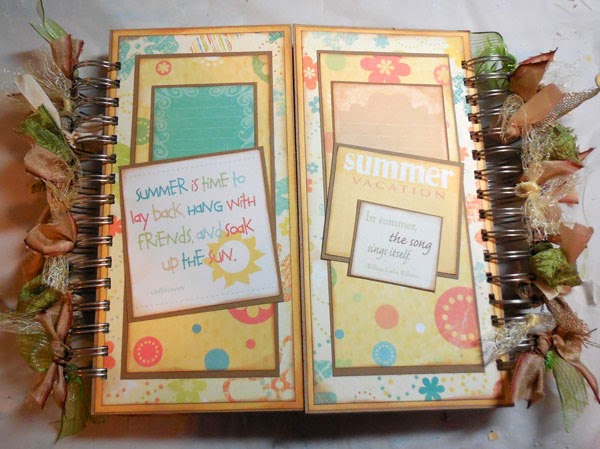 SUMMER IS TIME TO
lay back, HANG WITH
FRIENDS, AND SOAK
UP THE SUN.
-unknown
summer
VACATION
In summer,
the song
sings itself.
-William Carlos Williams